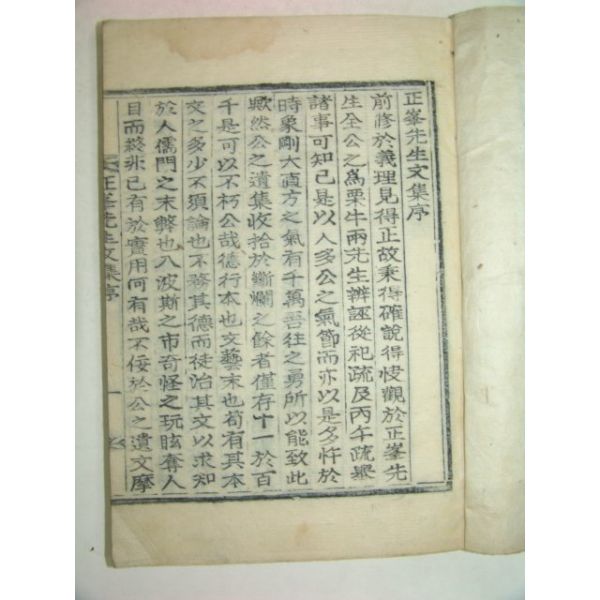 正峯先生文集序
前修於義理見得正故秉得確說得快觀於正峯先
生全公之爲栗牛兩先生辨誣從祀疏及丙午疏舉
諸事可知已是以人多公之氣節而亦以是多忤於
時象剛大直方之氣有千萬吾往之勇所以能致此
歟然公之遺集收拾於斷爛之餘者僅存十一於百
千是可以不朽公哉德行本也文藝末也苟有其本
文之多少不須論也不務其德而徒治其文以求知
於人儒門之末弊也入波斯之市奇怪之玩眩奪人
目而終非己有於實用何有哉不佞於公之遺文摩
正峯先生文集序
一